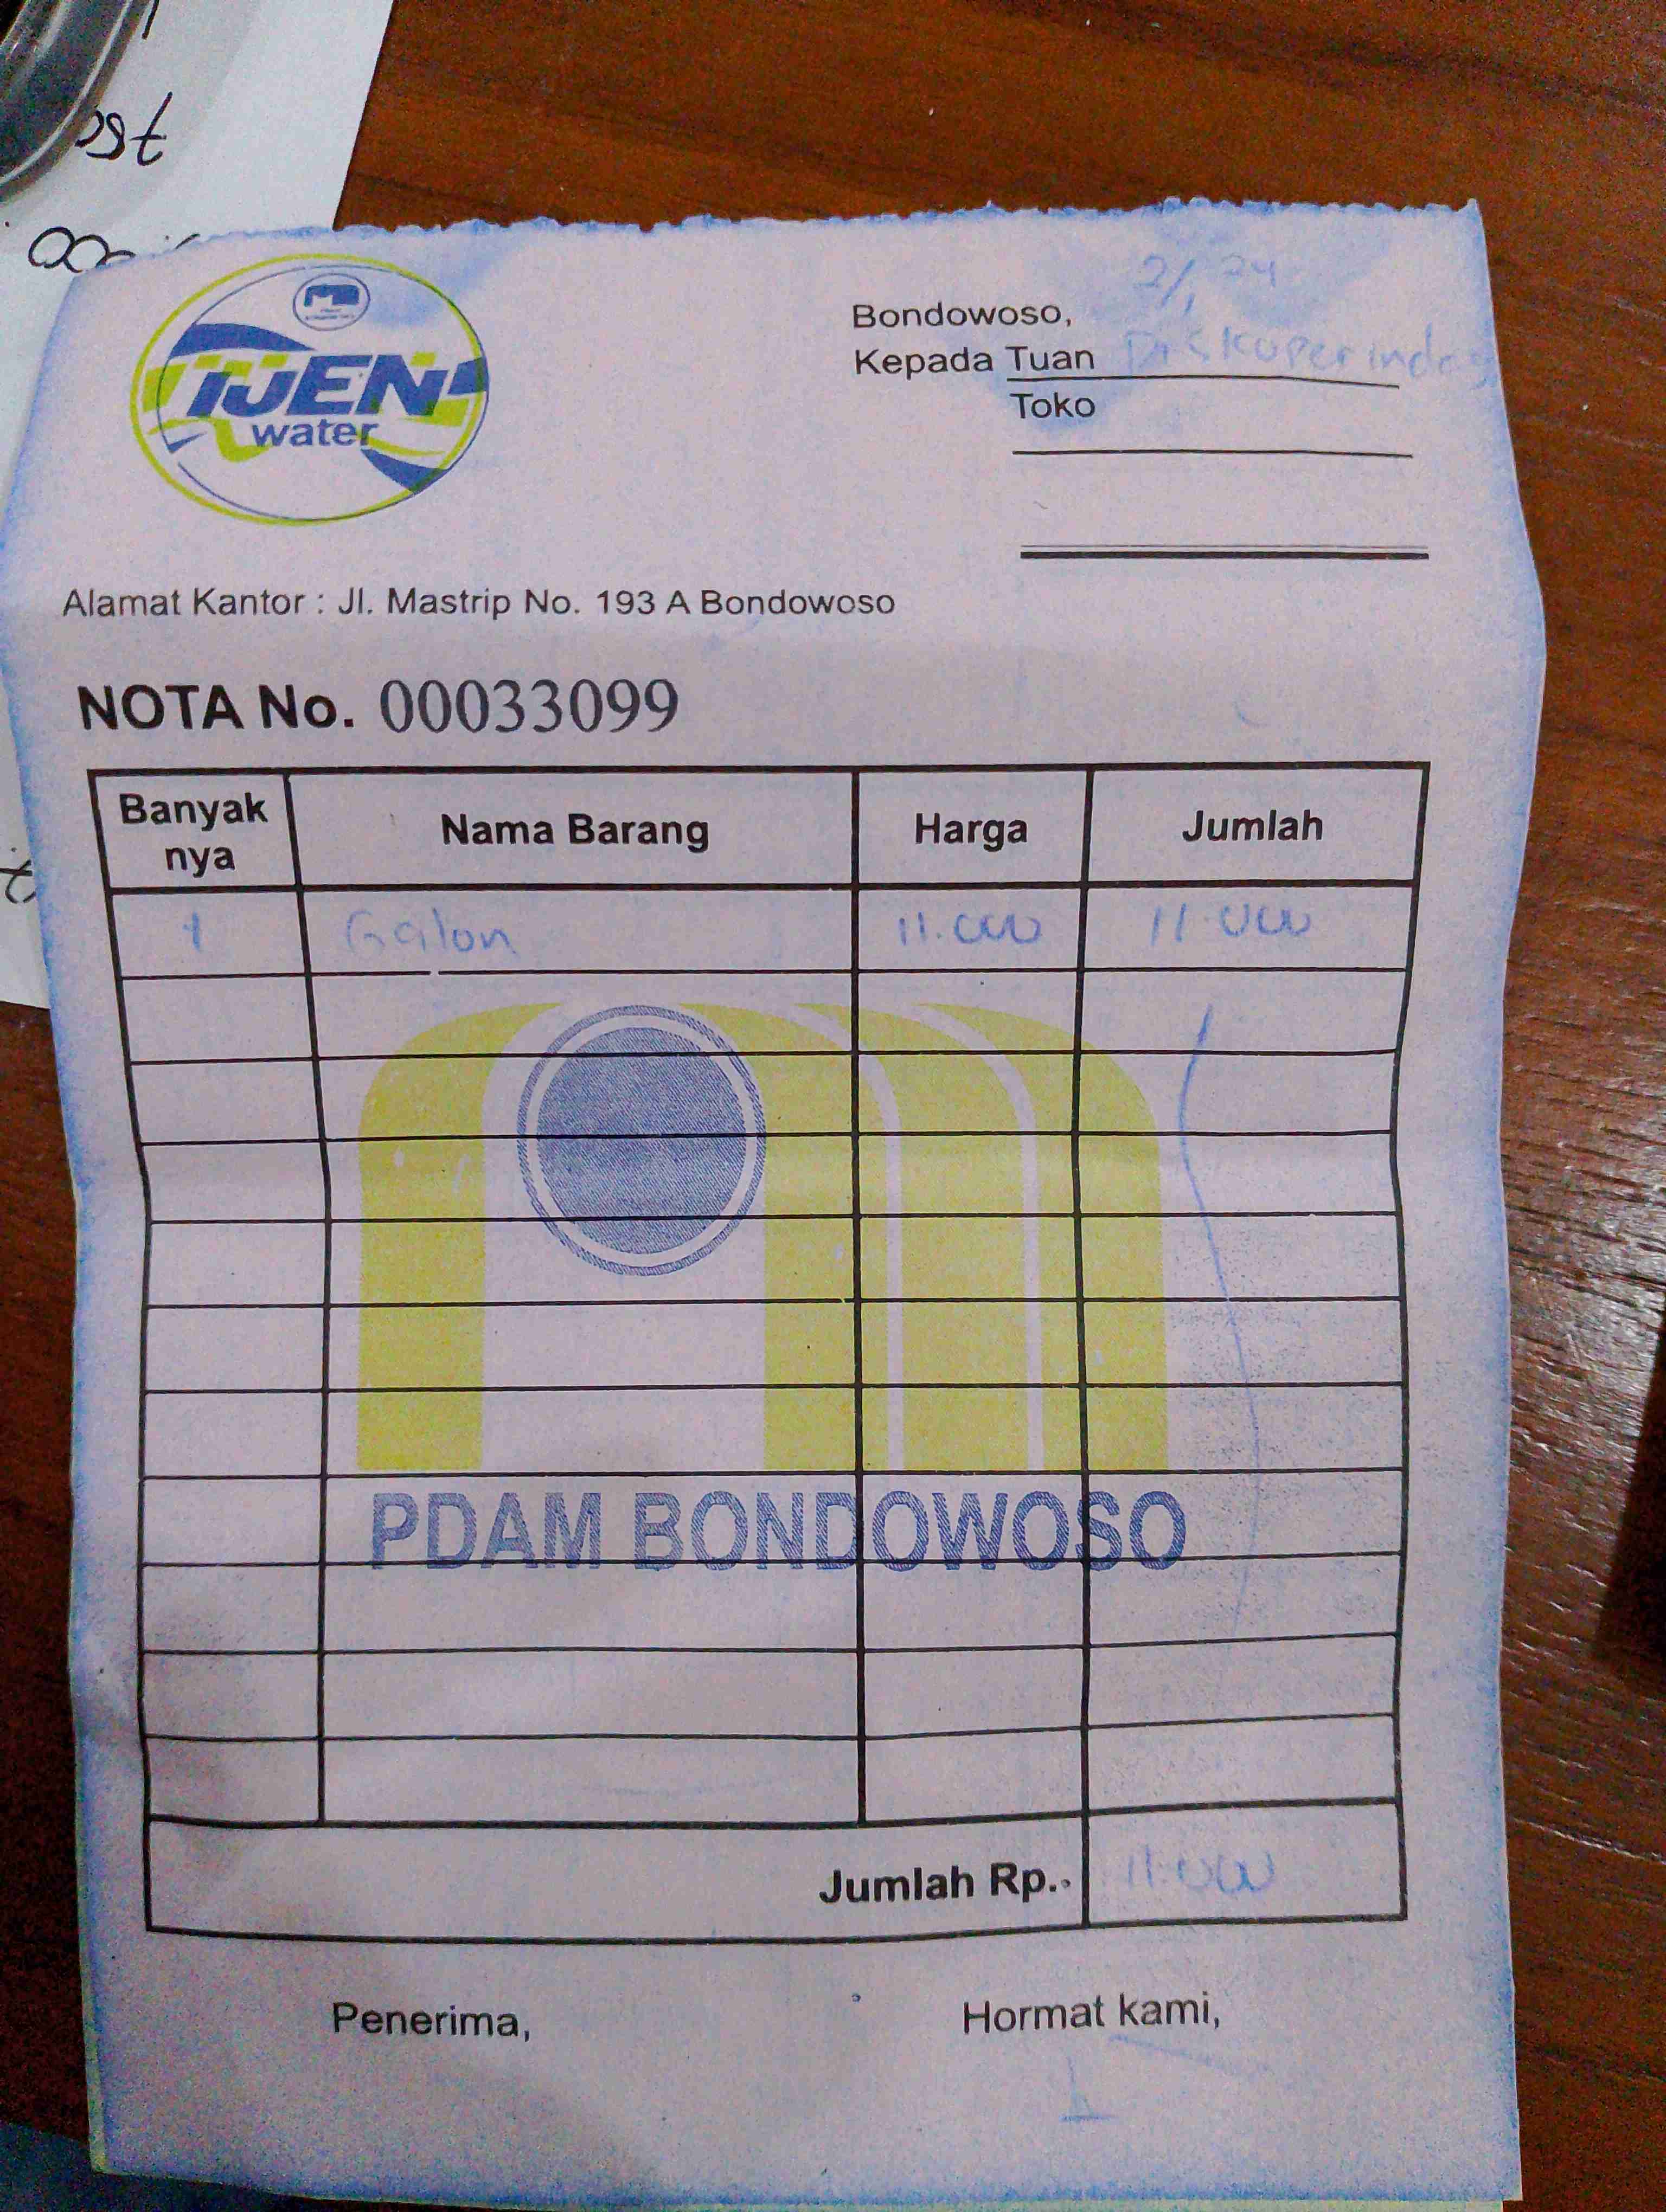 IJEN
water
Bondowoso, 2/1 24
Kepada Tuan Diskoperindag
Toko
Alamat Kantor : Jl. Mastrip No. 193 A Bondowoso
NOTA No. 00033099
Banyak nya Nama Barang Harga Jumlah
1 Galon 11.000 11.000
PDAM BONDOWOSO
Jumlah Rp.. 11.000
Penerima, Hormat kami,